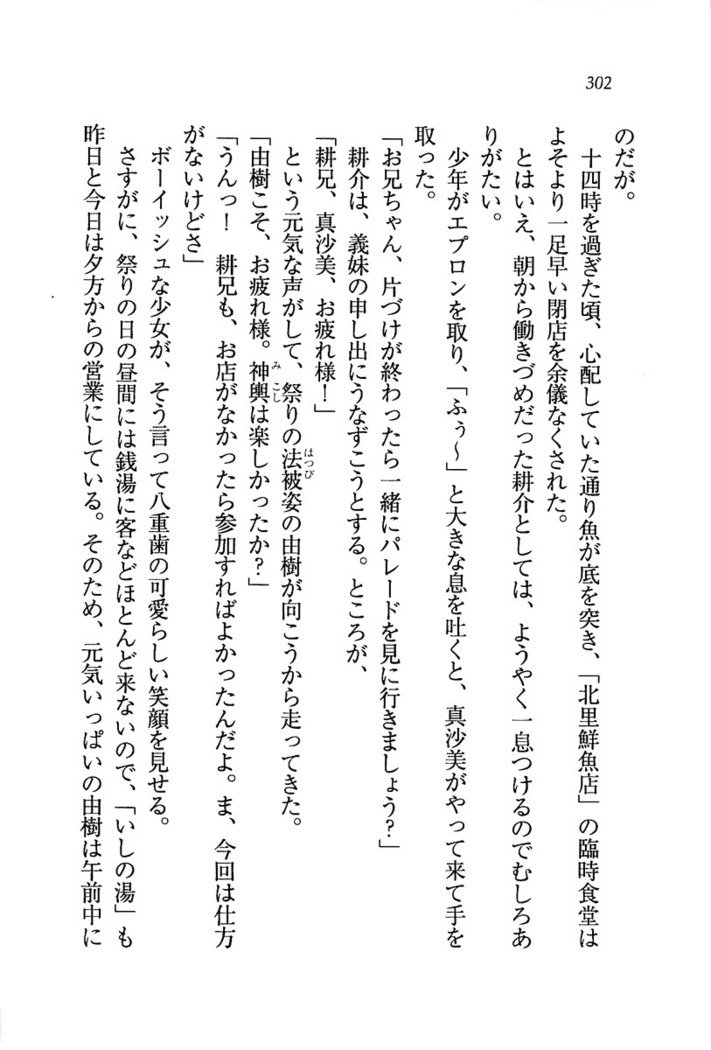 302
のだが。
十四時を過ぎた頃、心配していた通り魚が底を突き、「北里鮮魚店」の臨時食堂は
よそより一足早い閉店を余儀なくされた。
とはいえ、朝から働きづめだった耕介としては、ようやく一息つけるのでむしろあ
りがたい。
少年がエプロンを取り、「ふぅ〜」と大きな息を吐くと、真沙美がやって来て手を
取った。
「お兄ちゃん、片づけが終わったら一緒にパレードを見に行きましょう?」
耕介は、義妹の申し出にうなずこうとする。ところが、
「耕兄、真沙美、お疲れ様!」
という元気な声がして、祭りの法被姿の由樹が向こうから走ってきた。
はっぴ
「由樹こそ、お疲れ様。神輿は楽しかったか?」
みこし
「うんっ! 耕兄も、お店がなかったら参加すればよかったんだよ。ま、今回は仕方
がないけどさ」
ボーイッシュな少女が、そう言って八重歯の可愛らしい笑顔を見せる。
さすがに、祭りの日の昼間には銭湯に客などほとんど来ないので、「いしの湯」も
昨日と今日は夕方からの営業にしている。そのため、元気いっぱいの由樹は午前中に